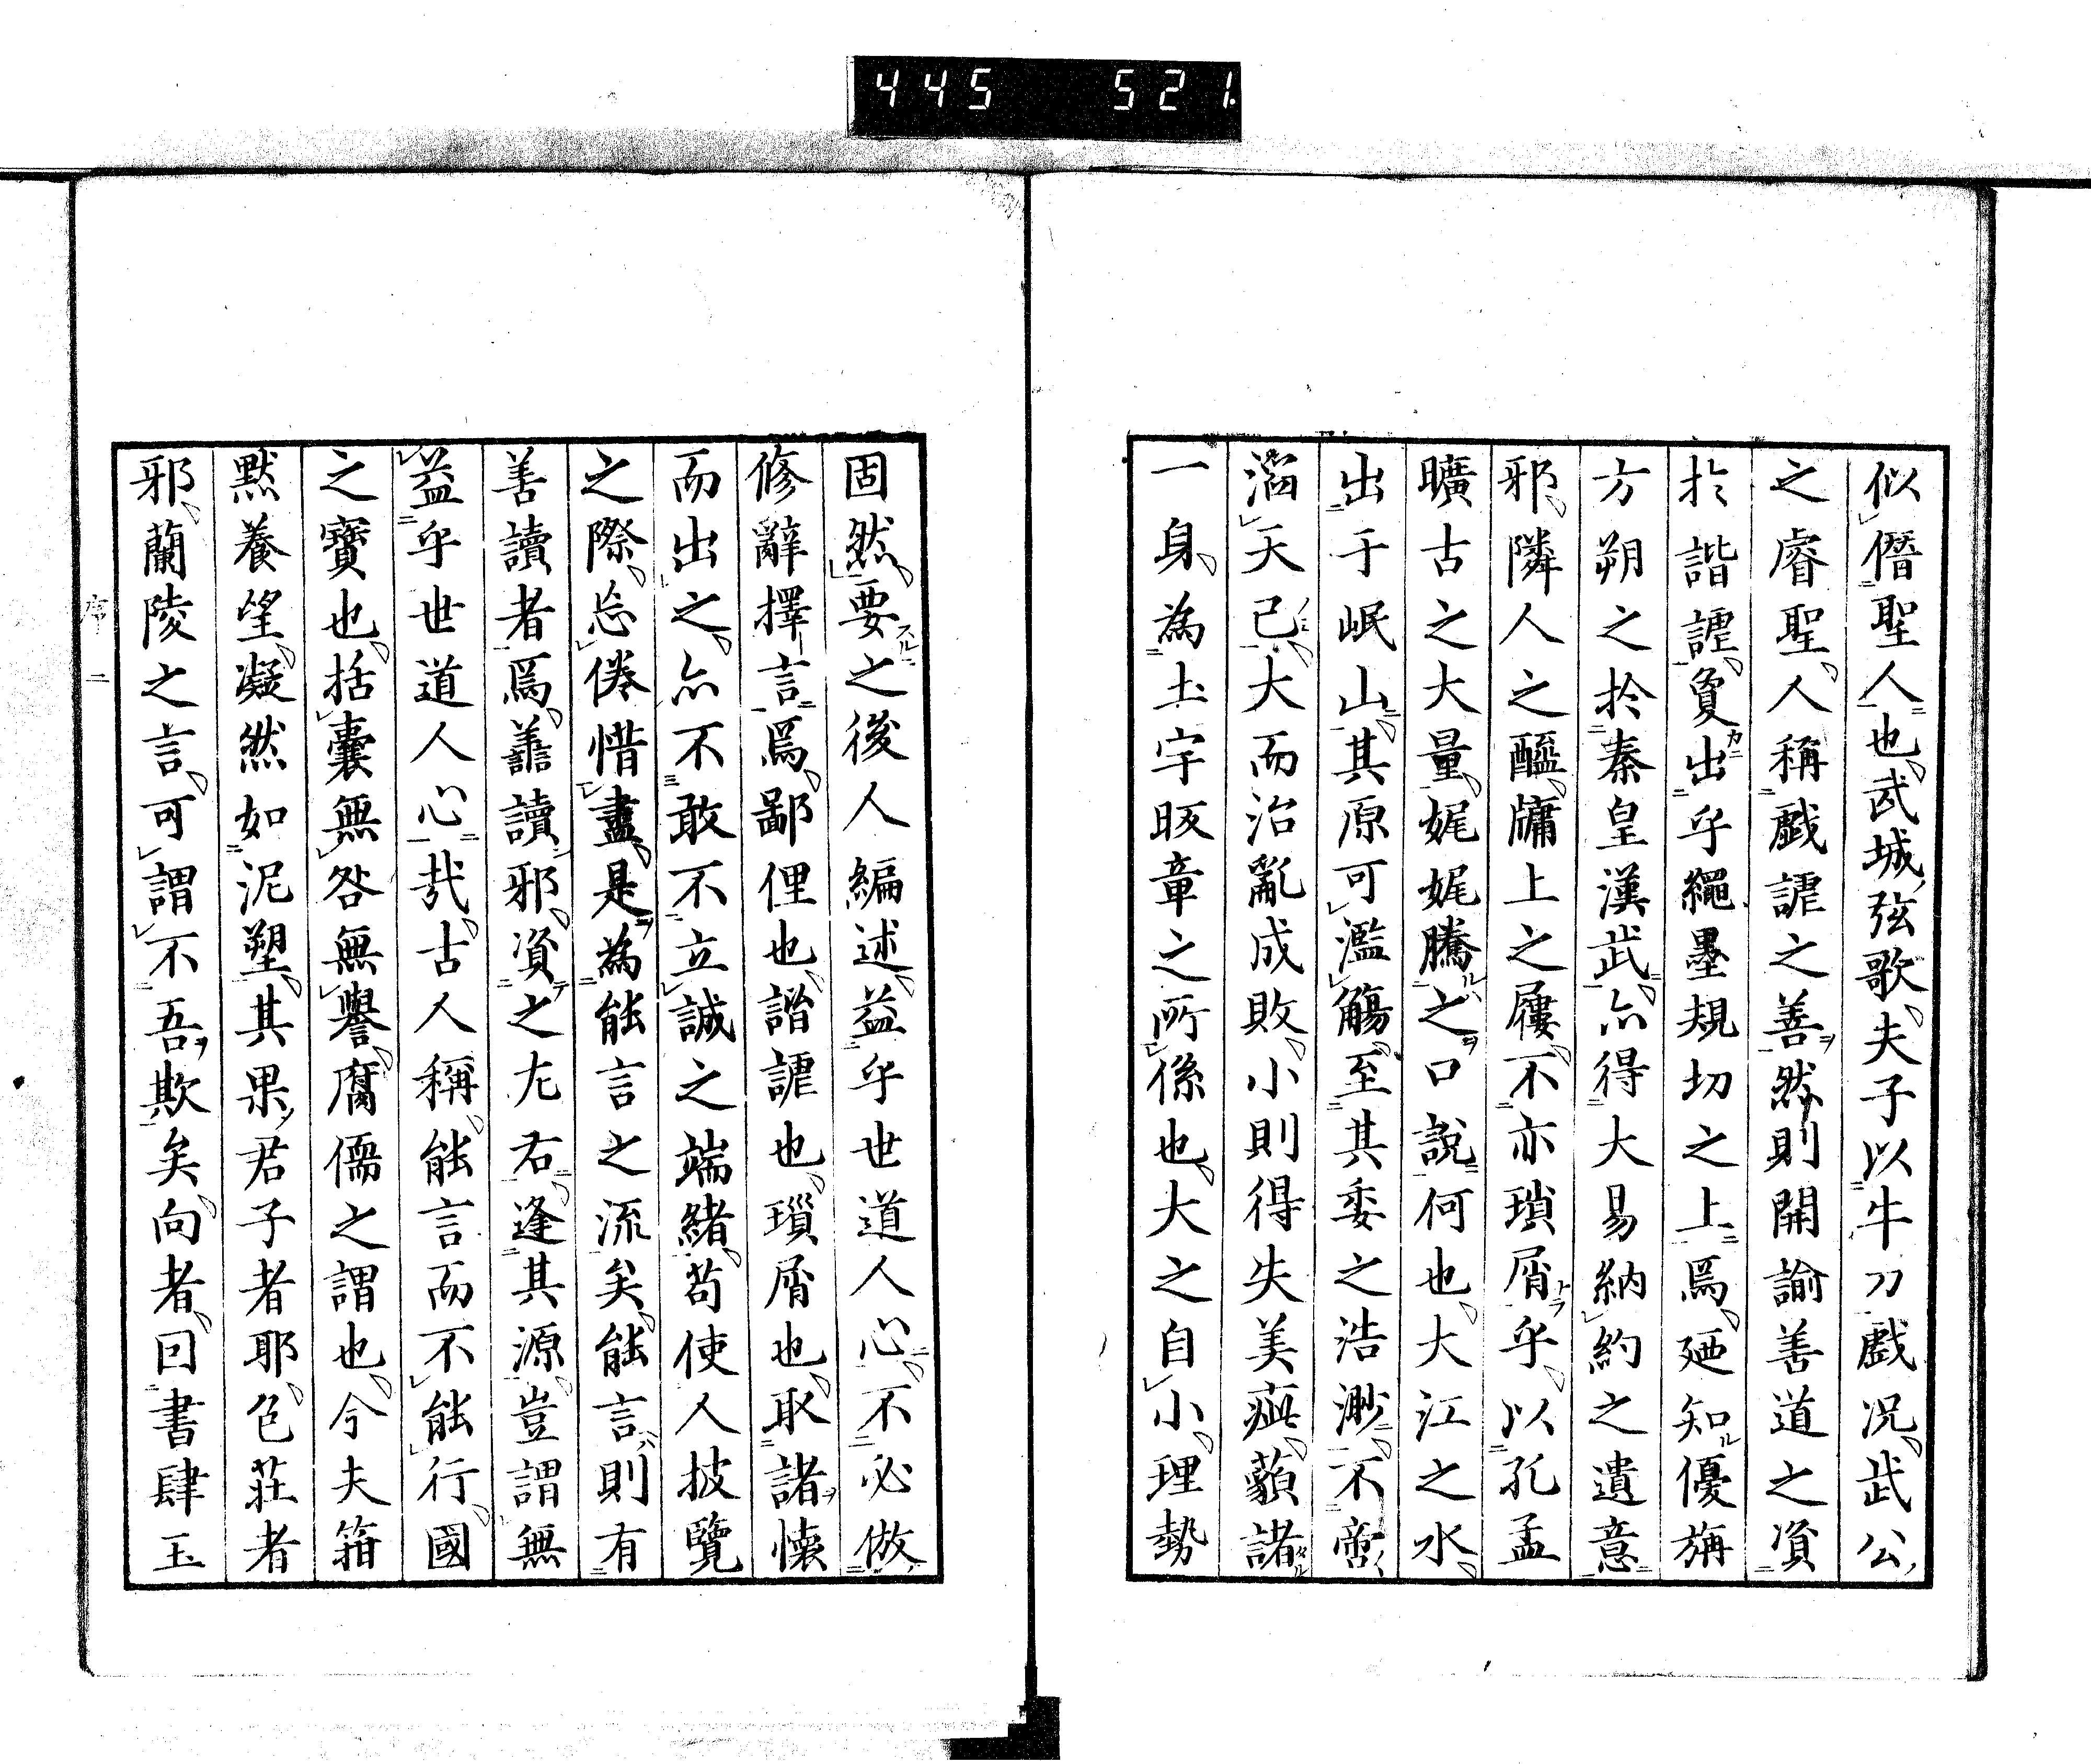 445 521
似僭聖人也武城弦歌夫子以牛刀戲況武公
之睿聖人稱戲謔之善然則開諭善道之資
扵諧謔夐出乎繩墨規切之上焉廼知優旃
方朔之扵秦皇漢武亦得大易納約之遺意
邪隣人之醯牗上之屨不亦瑣屑乎以孔孟
曠古之大量娓娓騰之口說何也大江之水
出于岷山其原可濫觴至其委之浩渺不啻
滔天已大而治亂成敗小則得失美疵藐諸
一身為土宇昄章之所係也大之自小理勢
固然要之後人編述益乎世道人心不必倣
修辭擇言焉鄙俚也諧謔也瑣屑也取諸懷
而出之亦不敢不立誠之端緒苟使人披覽
之際忘倦惜盡是為能言之流矣能言則有
善讀者焉善讀邪資之左右逢其源豈謂無
益乎世道人心哉古人稱能言而不能行國
之寶也括囊無咎無譽腐儒之謂也今夫箝
默養望凝然如泥塑其果君子者耶色莊者
邪蘭陵之言可謂不吾欺矣向者囘書肆玉
序 二